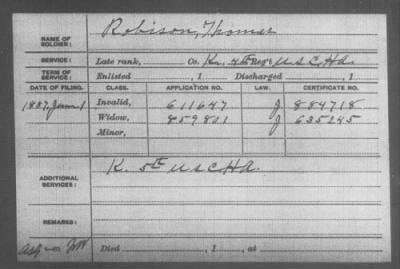 NAME OF SOLDIER: Robison, Thomas
SERVICE: Late rank, Co. K, 4th Reg't U S C, H A.
TERM OF SERVICE: Enlisted , 1 Discharged , 1
DATE OF FILING. CLASS. APPLICATION NO. LAW. CERTIFICATE NO.
1887, June 1 Invalid, 611647 J 884718
Widow, 859801 J 635245
Minor,
ADDITIONAL SERVICES: K. 5th U S C H A.
REMARKS:
Died , 1 , at